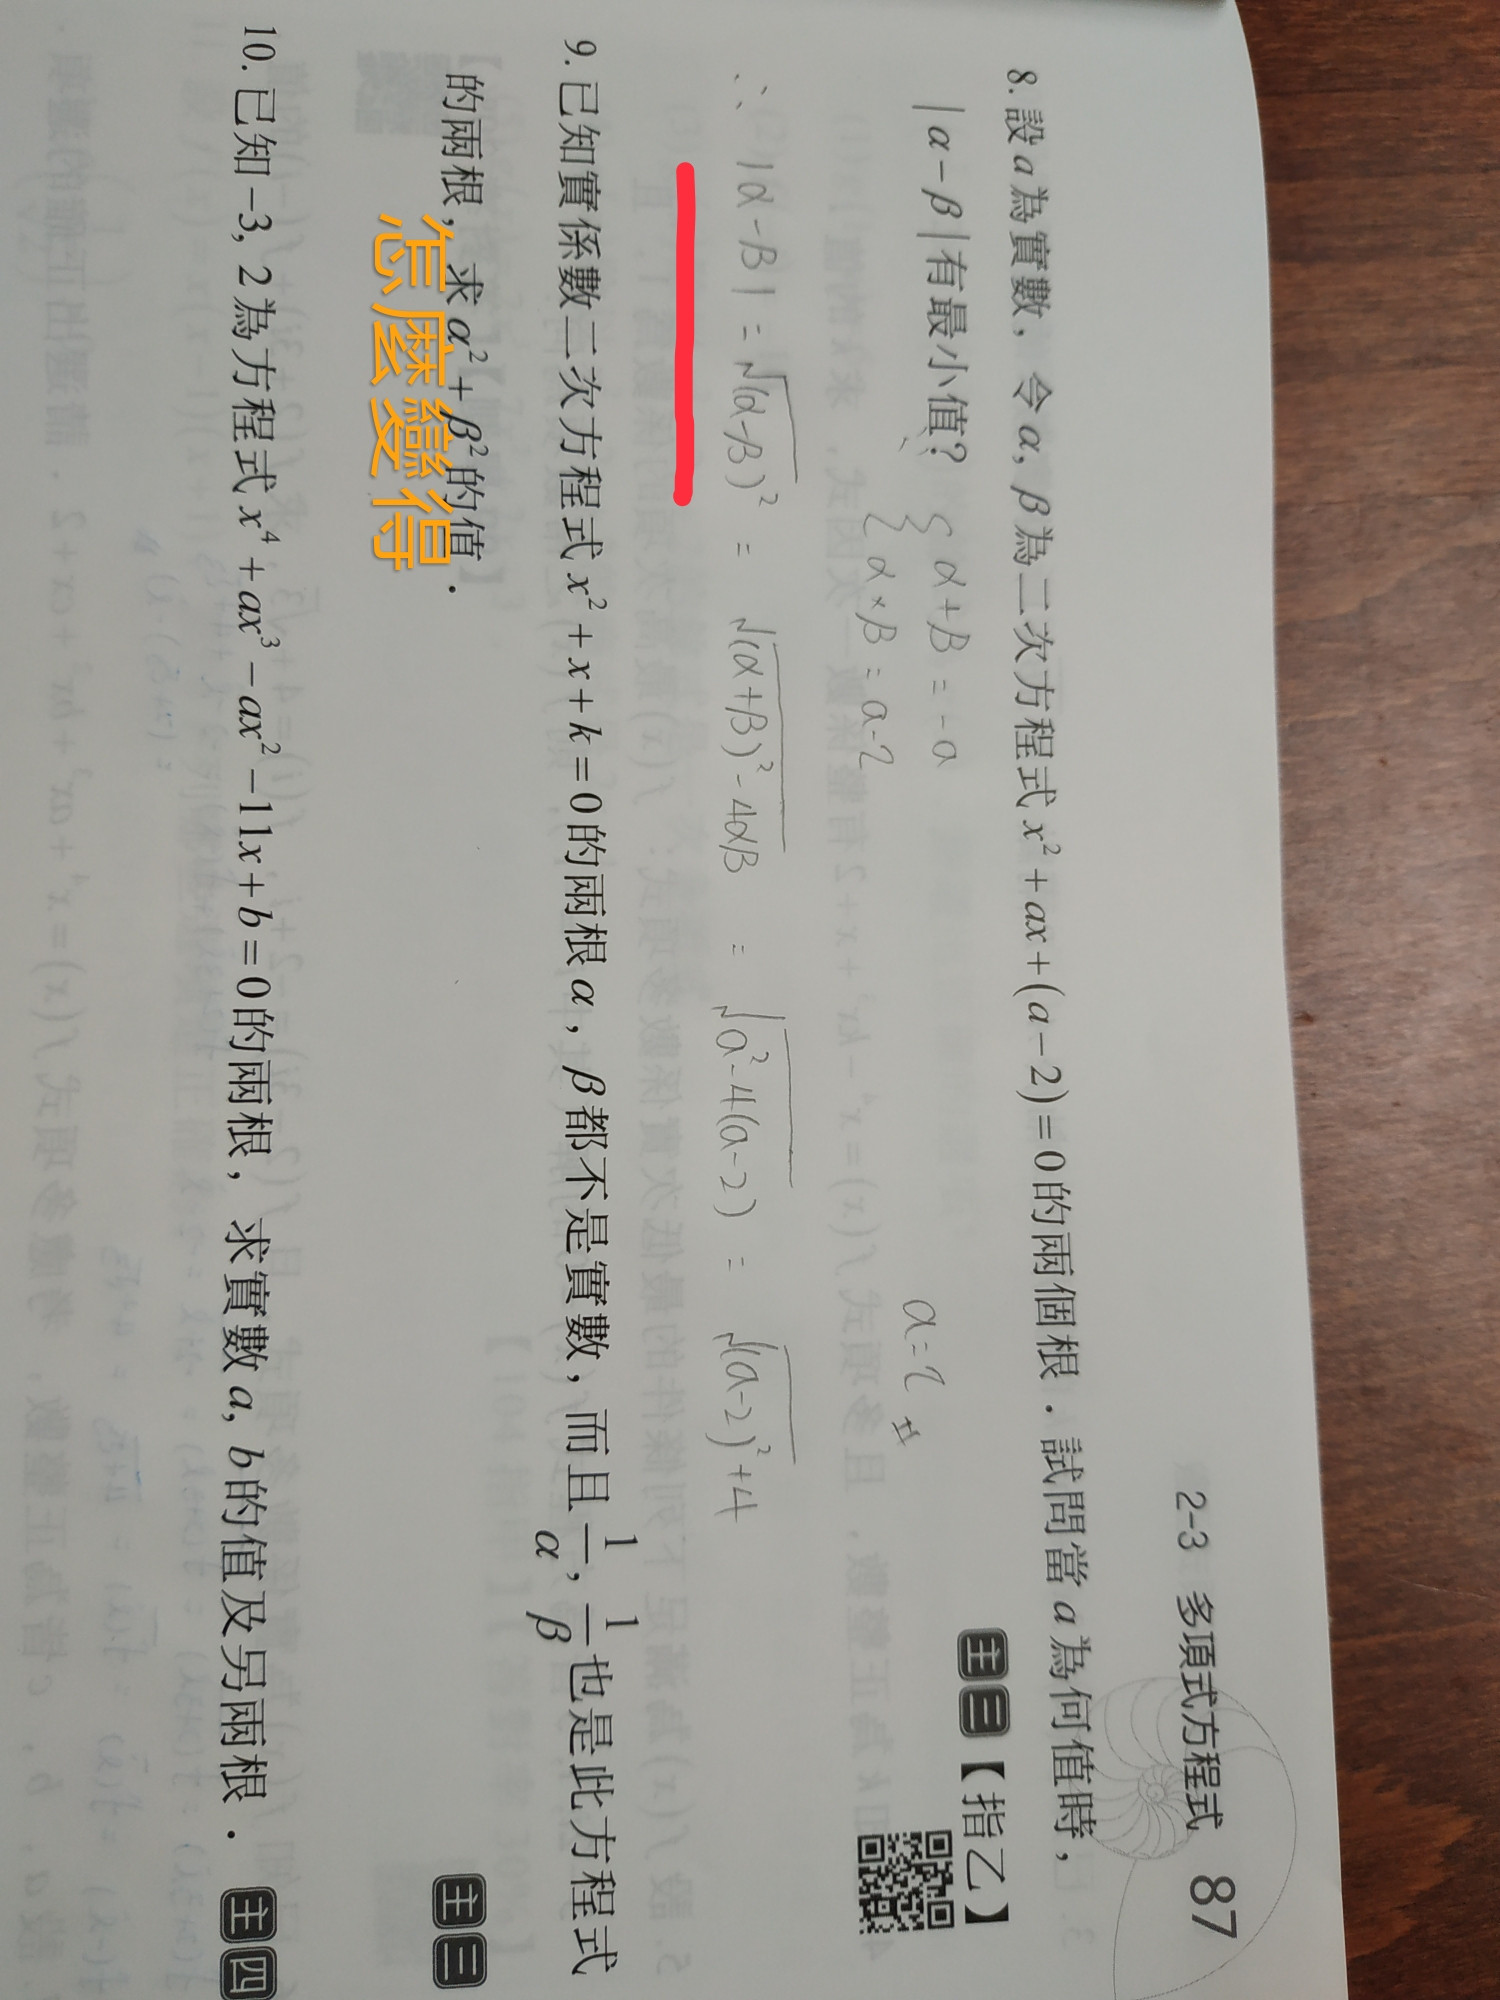 2-3 多項式方程式 87
8. 設a為實數，令α, β為二次方程式x²+ax+(a−2)=0的兩個根．試問當a為何值時，
|α−β|有最小值？
主 三【指乙】
{ α+β=-a
α×β=a-2
a=2 #
∴ |α-β| = √(α-β)² = √(α+β)²-4αβ = √a²-4(a-2) = √(a-2)²+4
9. 已知實係數二次方程式x²+x+k=0的兩根α, β都不是實數，而且1/α, 1/β也是此方程式
的兩根，求α²+β²的值．
主 三
怎麼變得
10. 已知−3, 2為方程式x⁴+ax³−ax²−11x+b=0的兩根，求實數a, b的值及另兩根．
主 四